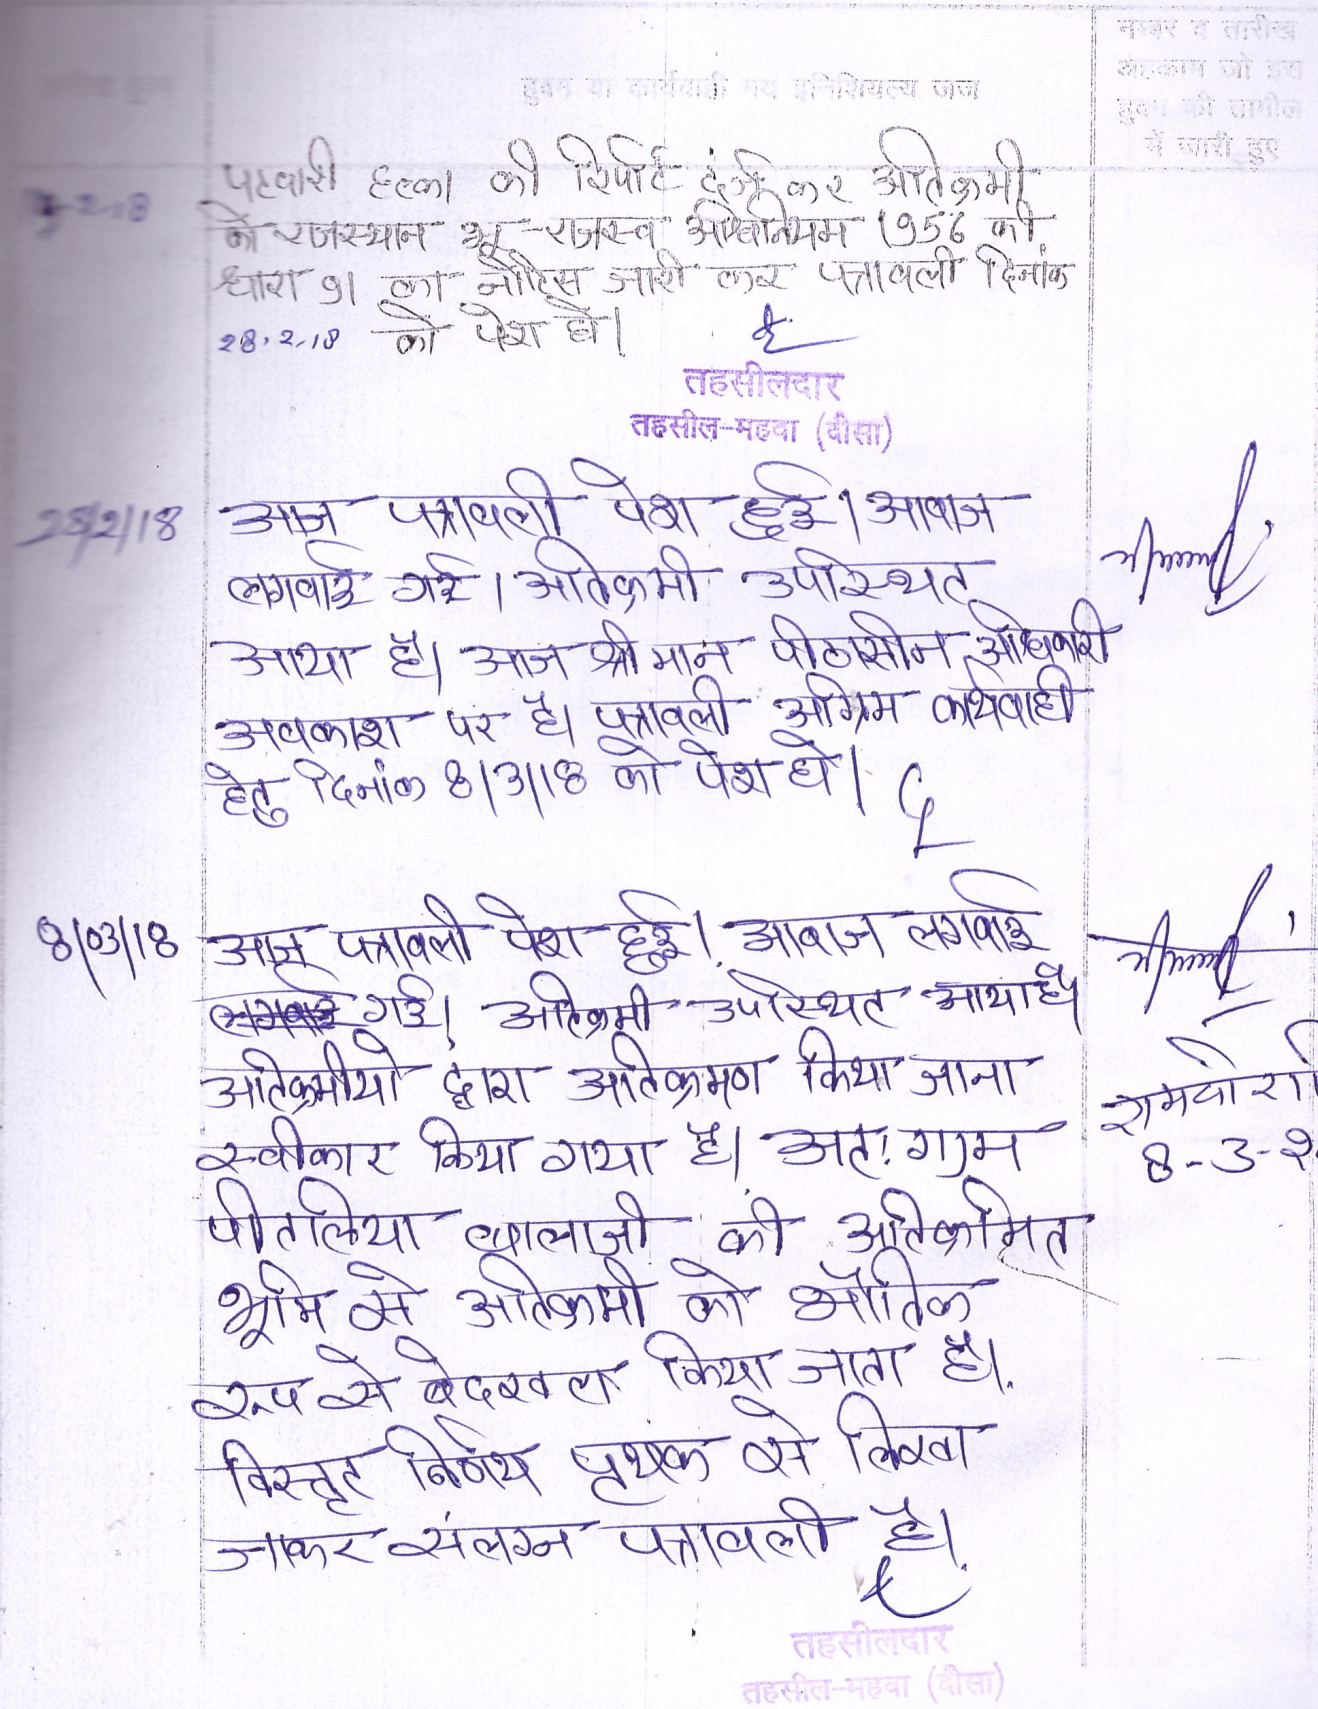 नम्बर व तारीख
अहकाम जो इस
हुक्म या कार्यवाही मय इनिशियल्य जज
हुक्म की तामील
में जारी हुए
पटवारी हल्का की रिपोर्ट दर्ज कर अतिक्रमी
को राजस्थान भू-राजस्व अधिनियम 1956 की
धारा 91 का नोटिस जारी कर पत्रावली दिनांक
28.2.18 को पेश हो।
तहसीलदार
तहसील-महवा (दौसा)
28/2/18 आज पत्रावली पेश हुई। आवाज
लगवाई गई। अतिक्रमी उपस्थित
आया है। आज श्रीमान पीठासीन अधिकारी
अवकाश पर है। पत्रावली अग्रिम कार्यवाही
हेतु दिनांक 8/3/18 को पेश हो।
8/03/18 आज पत्रावली पेश हुई। आवाज लगवाई
गई। अतिक्रमी उपस्थित आया है।
अतिक्रमीयो द्वारा अतिक्रमण किया जाना
स्वीकार किया गया है। अतः ग्राम
पीतलिया बालाजी की अतिक्रमित
भूमि से अतिक्रमी को भौतिक
रूप से बेदखल किया जाता है।
विस्तृत निर्णय पृथक से लिखा
जाकर संलग्न पत्रावली है।
तहसीलदार
तहसील-महवा (दौसा)